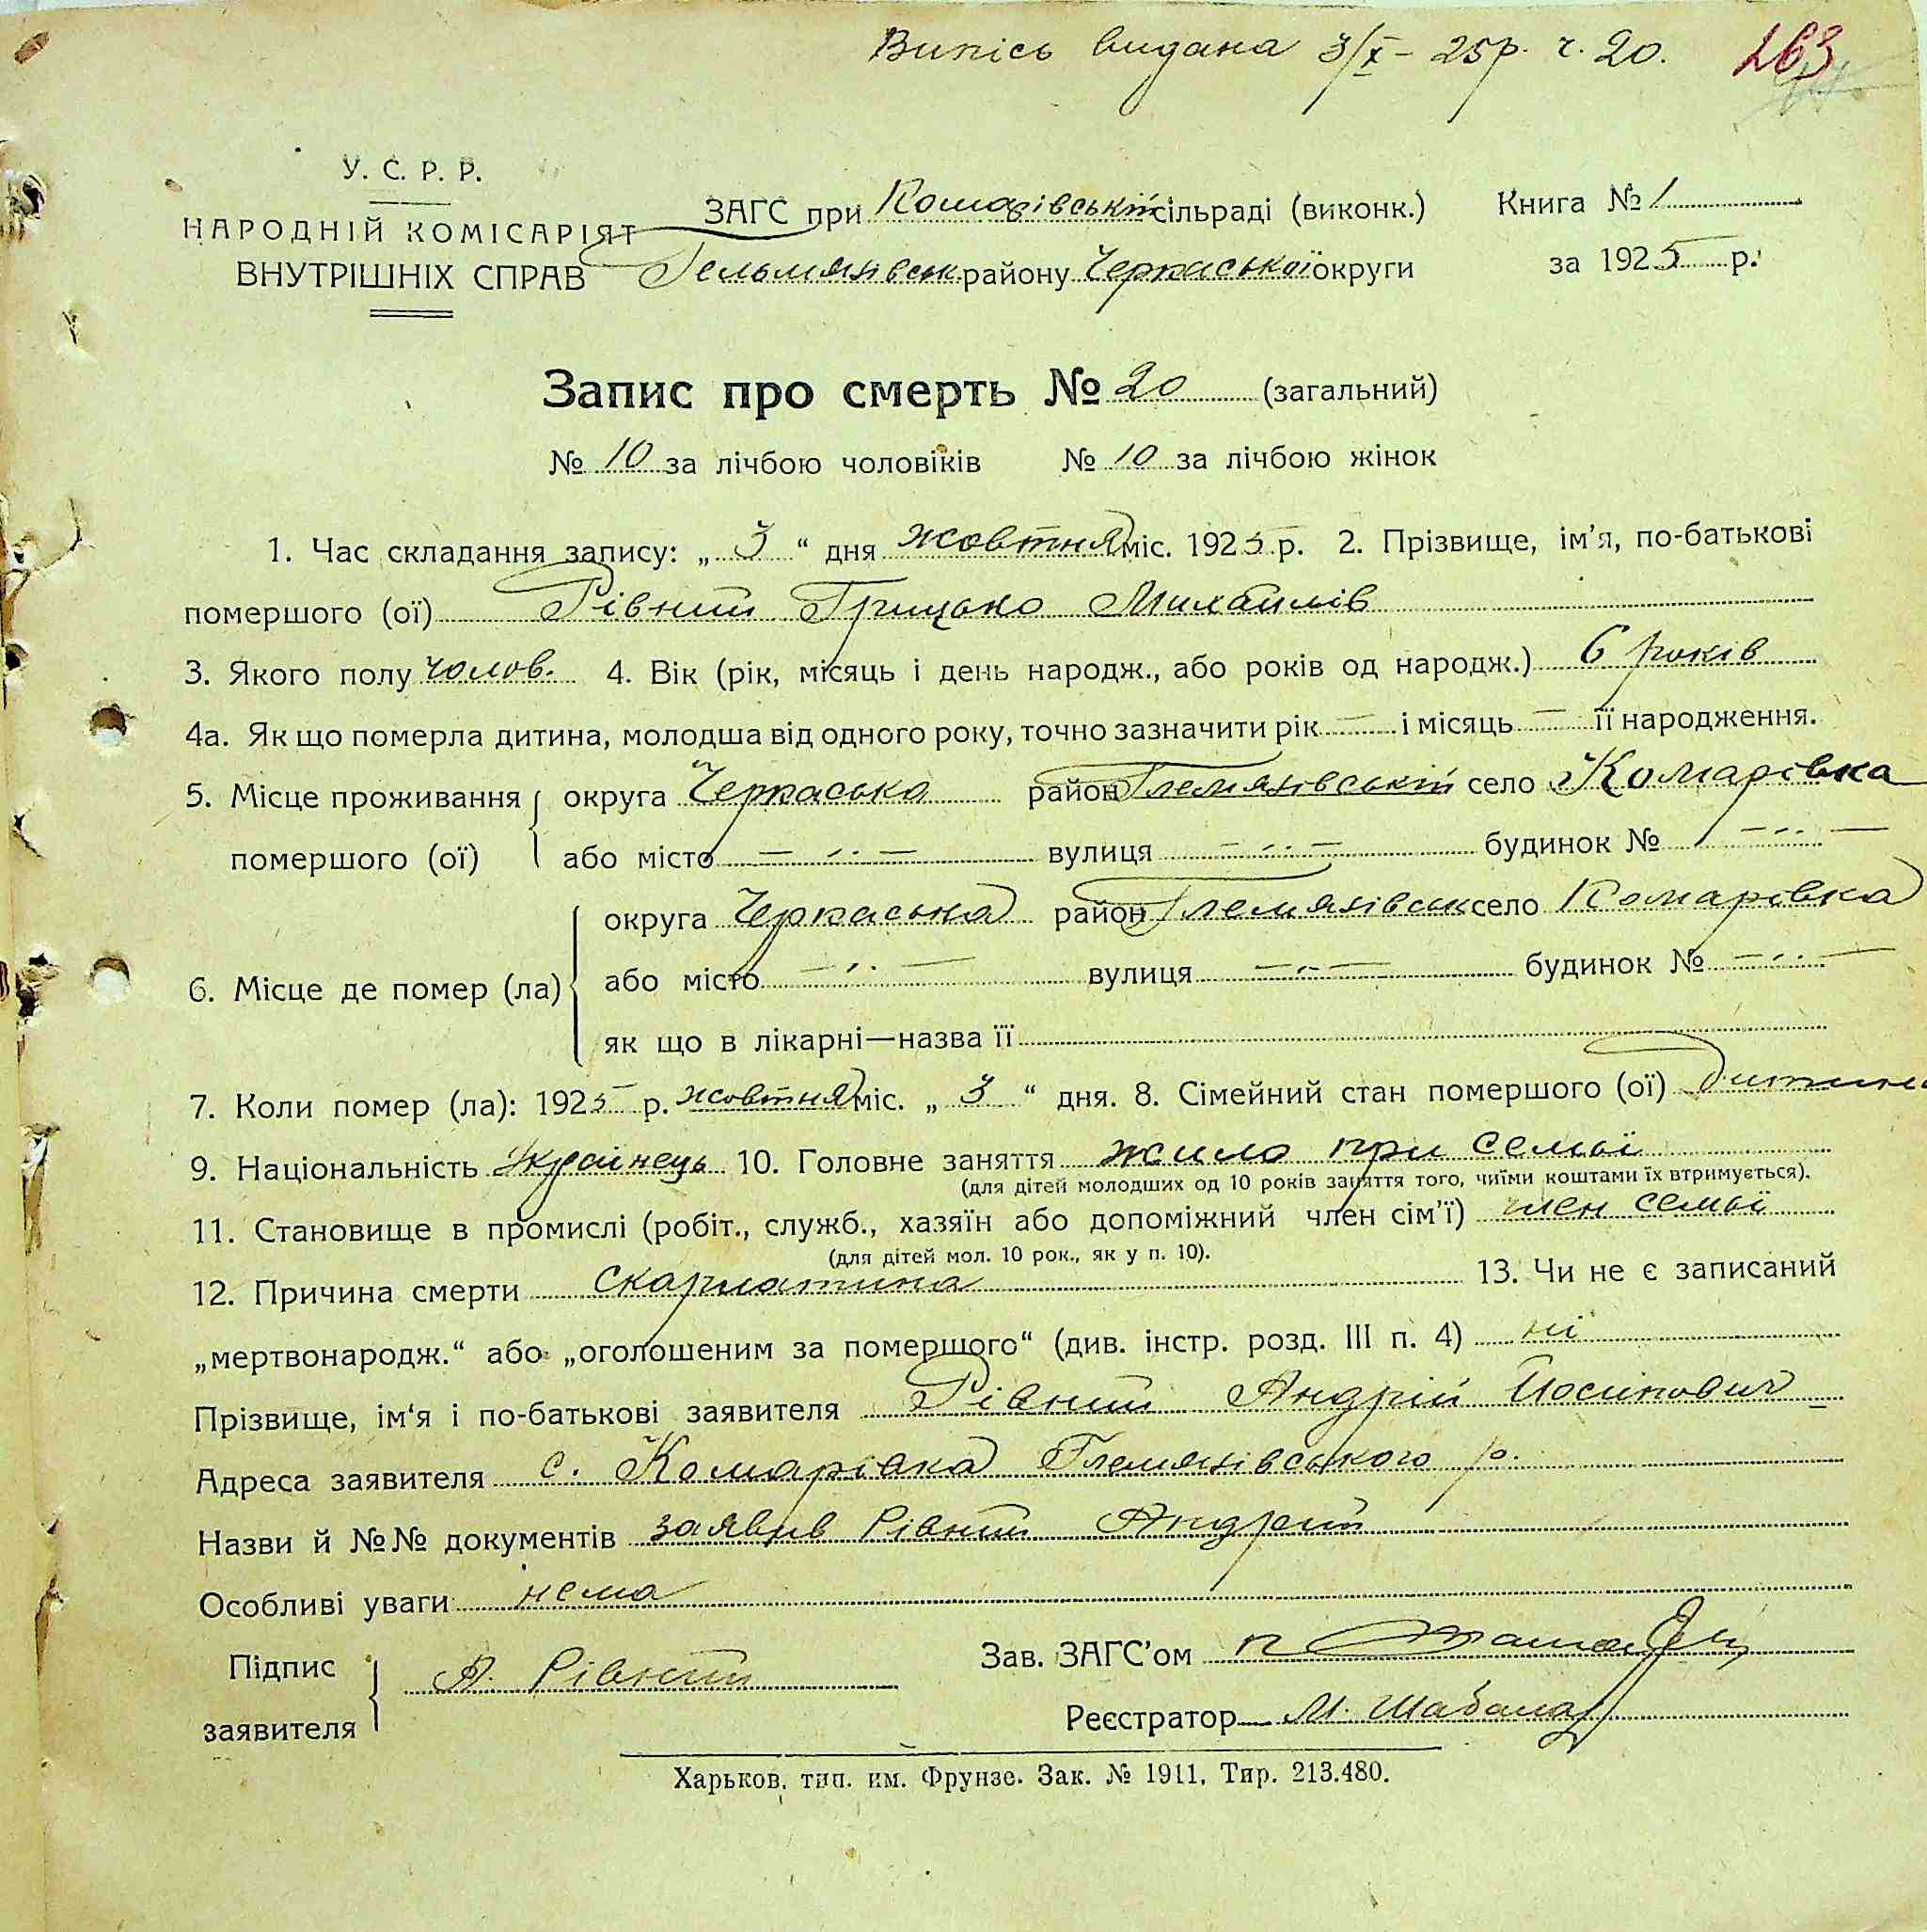 Випісь видана 3/X - 25 р. ч. 20. 263
У. С. Р. Р.
НАРОДНІЙ КОМІСАРІЯТ
ВНУТРІШНІХ СПРАВ
ЗАГС при Комарівській сільраді (виконк.) Книга № 1
Гельмязівськ району Черкаської округи за 1925 р.
Запис про смерть № 20 (загальний)
№ 10 за лічбою чоловіків № 10 за лічбою жінок
1. Час складання запису: „ 3 “ дня жовтня міс. 1925 р. 2. Прізвище, ім’я, по-батькові
помершого (ої) Рівний Грицько Михайлів
3. Якого полу чолов. 4. Вік (рік, місяць і день народж., або років од народж.) 6 років
4а. Як що померла дитина, молодша від одного року, точно зазначити рік — і місяць — її народження.
5. Місце проживання округа Черкаська район Глемязівський село Комарівка
помершого (ої) або місто — „ — вулиця — „ — будинок № — „ —
округа Черкаська район Глемязівськ село Комарівка
6. Місце де помер (ла) або місто — „ — вулиця — „ — будинок № — „ —
як що в лікарні—назва її
7. Коли помер (ла): 1925 р. жовтня міс. „ 3 “ дня. 8. Сімейний стан помершого (ої) дитина
9. Національність Українець 10. Головне заняття жило при семьї
(для дітей молодших од 10 років заняття того, чиїми коштами їх втримується).
11. Становище в промислі (робіт., служб., хазяїн або допоміжний член сім’ї) член семьї
(для дітей мол. 10 рок., як у п. 10).
12. Причина смерти скарлатина 13. Чи не є записаний
„мертвонародж.“ або „оголошеним за помершого“ (див. інстр. розд. III п. 4) ні
Прізвище, ім‘я і по-батькові заявителя Рівний Андрій Йосипович
Адреса заявителя с. Комарівка Глемязівського р.
Назви й №№ документів заявив Рівний Андрій
Особливі уваги нема
Підпис заявителя А. Рівний
Зав. ЗАГС’ом
Реєстратор М. Шабала
Харьков, тип. им. Фрунзе. Зак. № 1911, Тир. 213.480.